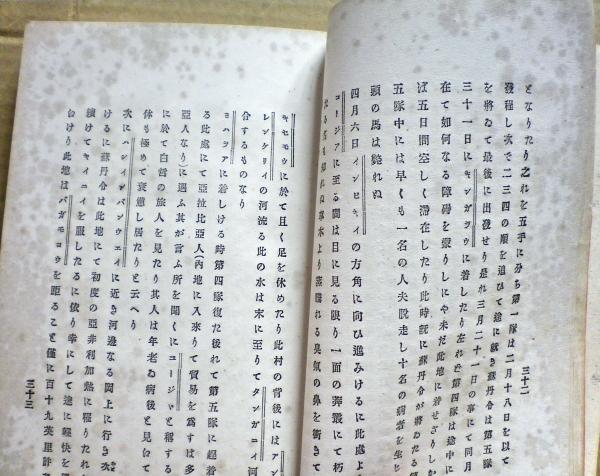 となりたり之れを五手に分ち第一隊は二月十八日を以て
發程し次で二三四の順を追ひて途に就き蘇丹令は第五隊
を將ゐて最後に出發せり是れ三月二十一日の事にて同月
三十一日にキンガヲウに着したり左れど第四隊は途中に
在て如何なる障碍を蒙りしにや未だ此地に着せざりしか
ば五日間空しく滯在したり此時既に蘇丹令が將ゐたる第
五隊中には早くも一名の人夫脱走し十名の病者を生じ
頭の馬は斃れぬ
四月六日インビキイの方角に向ひ進みけるに此處より
コージアに至る間は目に見る限り一面の莽叢にて朽
草木より蒸騰れる臭氣の鼻を衝きて
三十二
キセモウに於て且く足を休めたり此村の背後にはアン
レンケリイの河流る此の水は末に至りてタンガニイ河
合するものなり
ヨハラアに着しける時第四隊復た後れて第五隊に趕着
る此處にて亞拉比亞人(内地に入來りて貿易を爲すは多
亞人なり)に遇ふ其が言ふ所を聞くにユージャと稱する
に於て白晳の旅人を見たり其人は年老ゐ病後と見て
体も極めて衰憊し居たりと云へり
次にハシイデバンウエイに近き河邊なる岡上に行き
けるに蘇丹令は此地にて初度の亞非利加熱に罹りたれ
續けてキイニイを服したるに依り幸にして速に輕快を
台けり此地はバガモヨウを距ること僅に百十九英里許
三十三